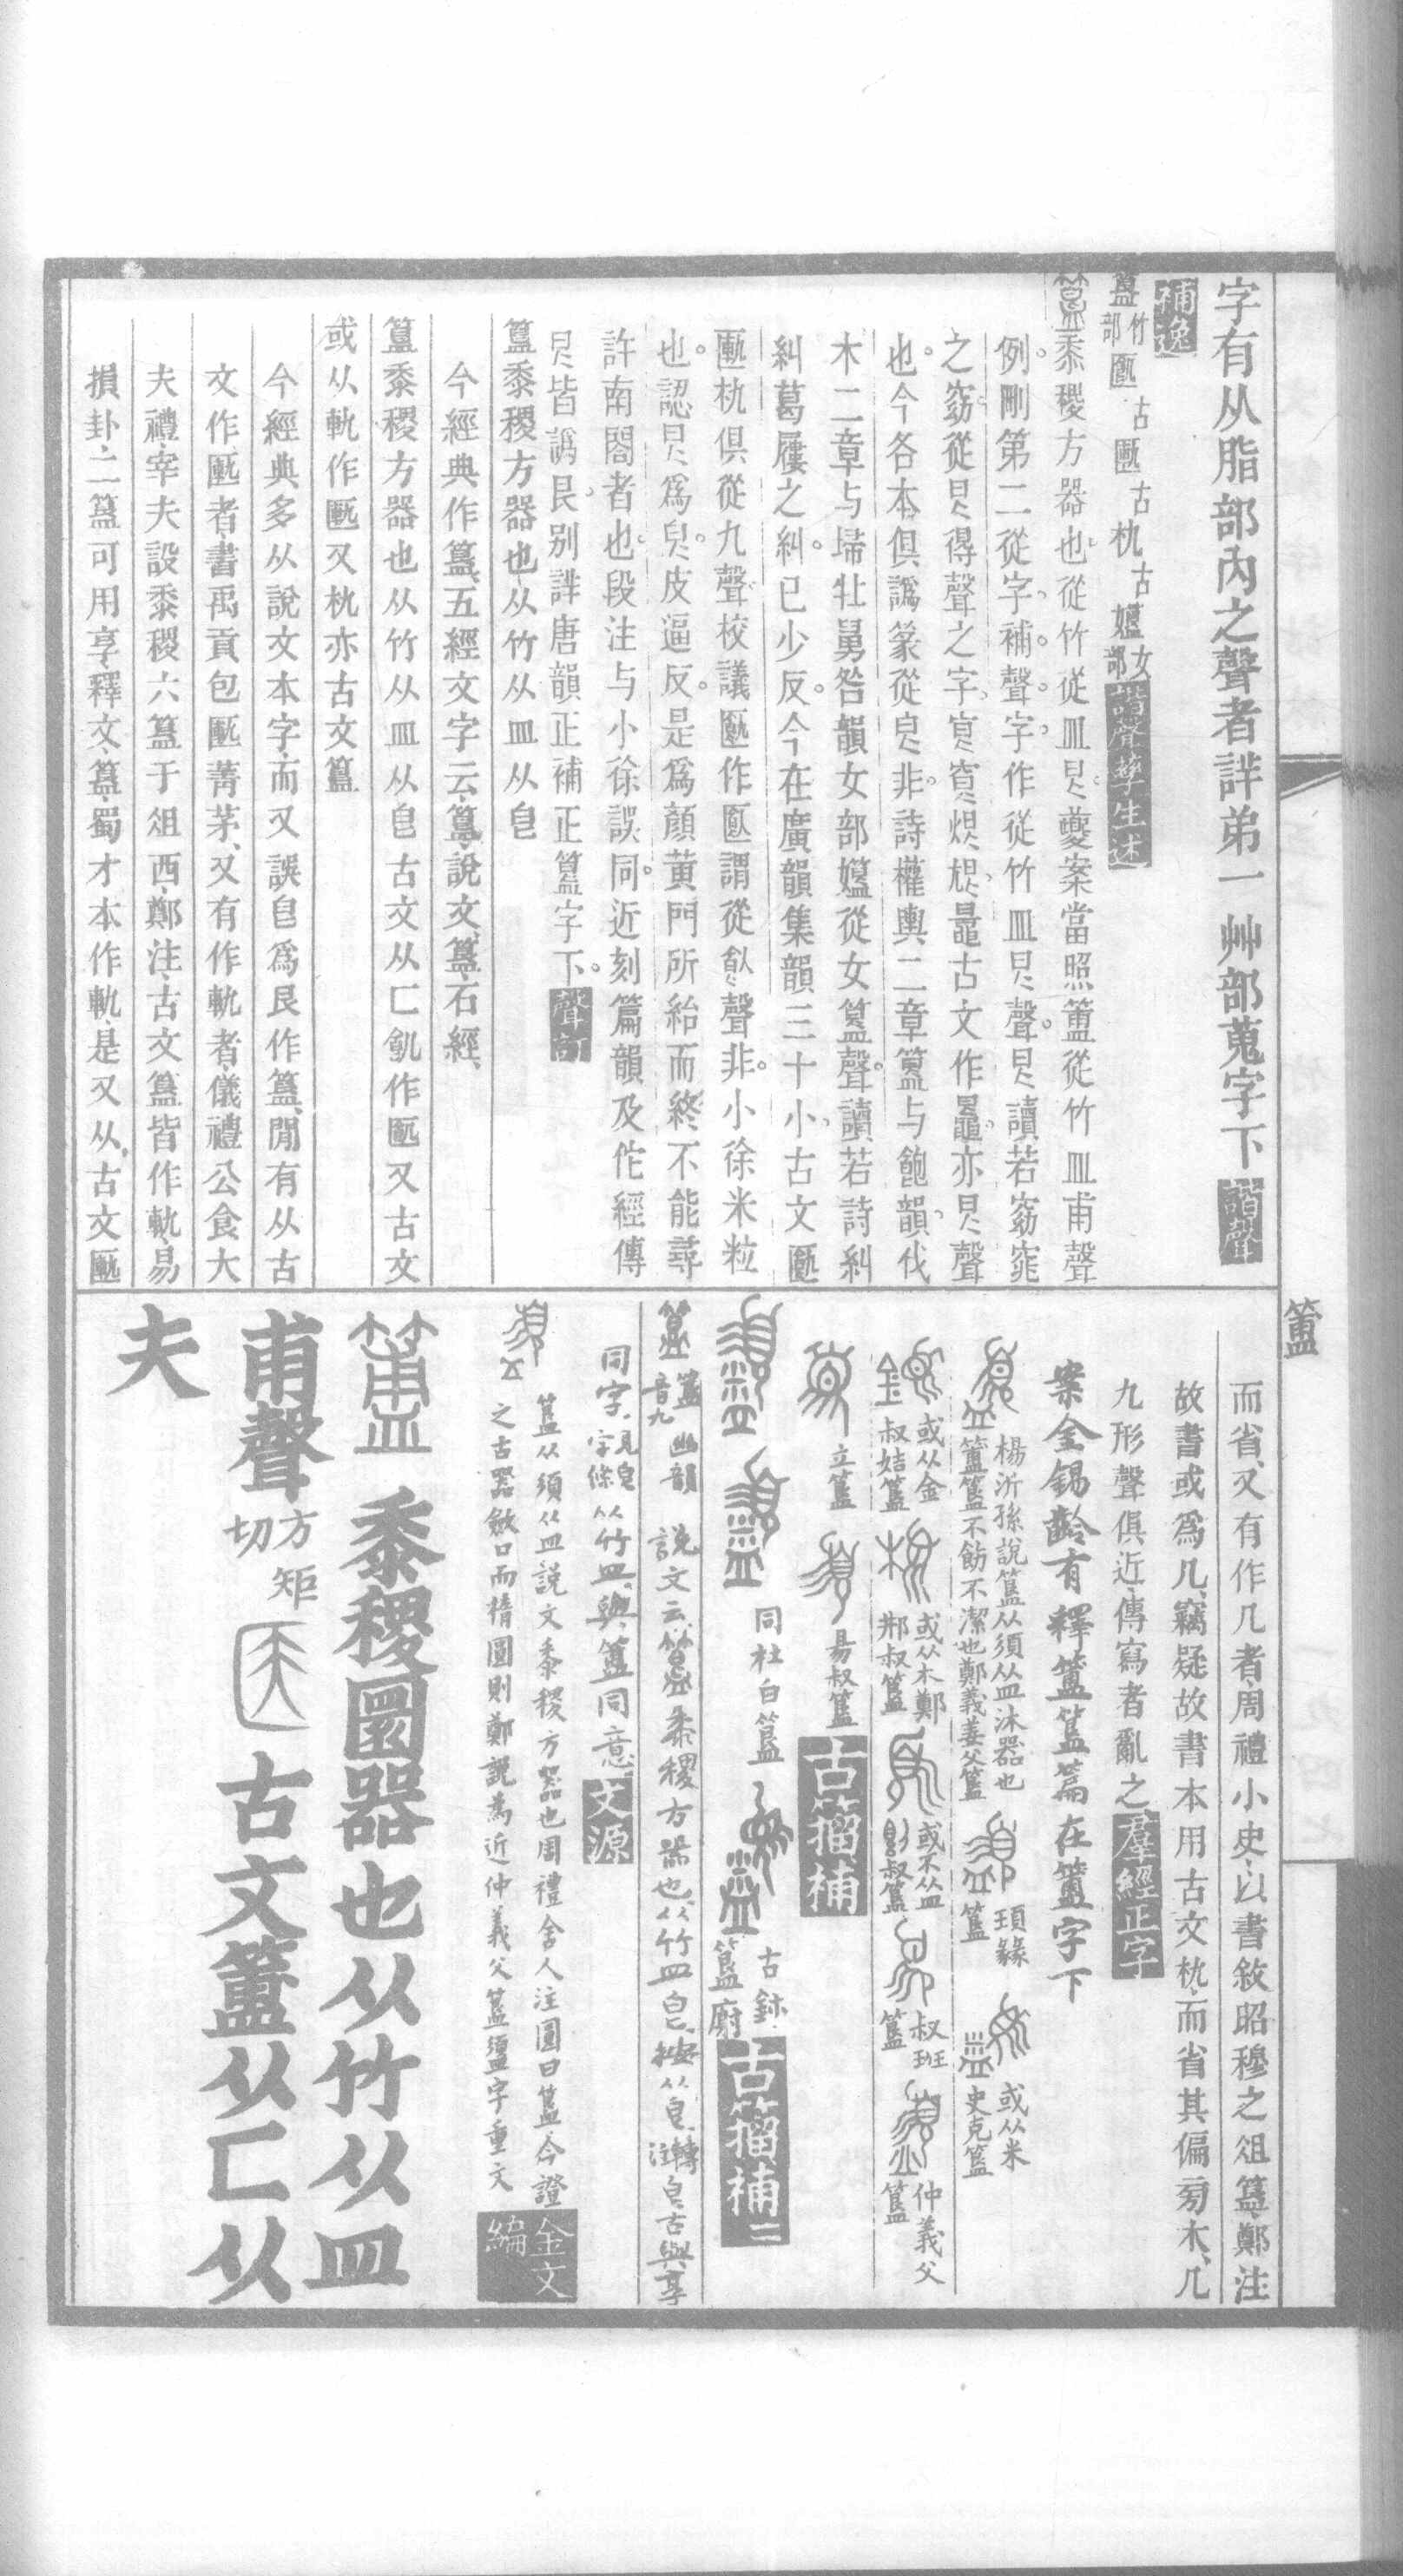 字有从脂部內之聲者詳弟一艸部蒐字下 諧聲
補逸
簋竹部 匭古 匭古 朹古 㜝女部 諧聲孳生述
簋黍稷方器也從竹從皿皀夔案當照簠從竹皿甫聲
例刪第二從字補聲字作從竹皿皀聲皀讀若窈窕
之窈從皀得聲之字
也今各本俱譌篆從皀非詩權輿二章簋与飽韻伐
木二章与埽牡舅咎韻女部㜝從女簋聲讀若詩糾
糾葛屨之糾已少反今在廣韻集韻三十小古文匭
匭朹俱從九聲校議匭作匭謂從飤聲非小徐米粒
也認皀爲皃皮逼反是爲顏黃門所紿而終不能尋
許南閣者也段注与小徐誤同近刻篇韻及佗經傳
皀皆譌艮別詳唐韻正補正簋字下 聲訂
簋黍稷方器也从竹从皿从皀
今經典作簋五經文字云簋說文簋石經
簋黍稷方器也从竹从皿从皀古文从匚飢作匭又古文
或从軌作匭又朹亦古文簋
今經典多从說文本字而又誤皀爲艮作簋閒有从古
文作匭者書禹貢包匭菁茅又有作軌者儀禮公食大
夫禮宰夫設黍稷六簋于俎西鄭注古文簋皆作軌易
損卦二簋可用享釋文簋蜀才本作軌是又从古文匭
簠
而省又有作几者周禮小史以書敘昭穆之俎簋鄭注
故書或爲几竊疑故書本用古文朹而省其偏旁木几
九形聲俱近傳寫者亂之 羣經正字
案金錫齡有釋簠簋篇在簠字下
楊沂孫說簋从須从皿沐器也
簠簋不飭不潔也鄭義姜父簋 簋 頊䜌 或从米 史克簋
或从金 叔姞簋 或从木鄭 邢叔簋 或不从皿 叔簋 叔班簋 仲義父簋
立簋 易叔簋 古籀補
同杜白簋 古鉥 簋廚 古籀補二
簋 簋音九 幽韻 說文云簋黍稷方器也从竹皿皀按从皀轉注皀古與享
同字見皀字條从竹皿與簠同意 文源
簋从須从皿說文黍稷方器也周禮舍人注圓曰簋今證
之古器斂口而橢圜則鄭說爲近仲義父簋盨字重文 金文編
簠 黍稷圜器也从竹从皿
甫聲 方矩切 古文簠从匚从
夫